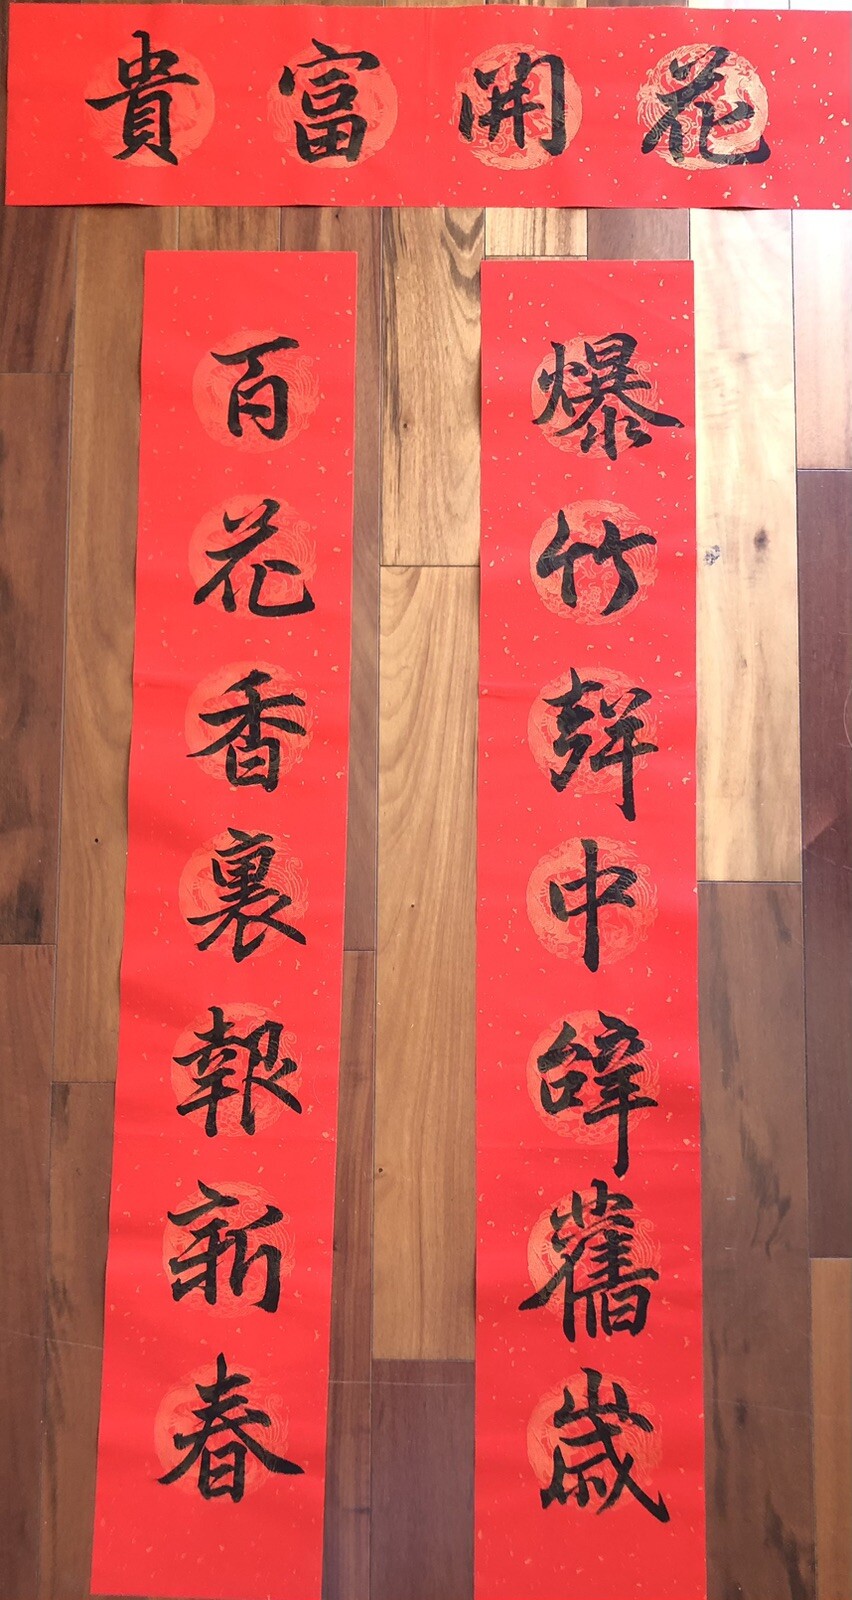 花開富貴
爆竹聲中辭舊歲
百花香裏報新春